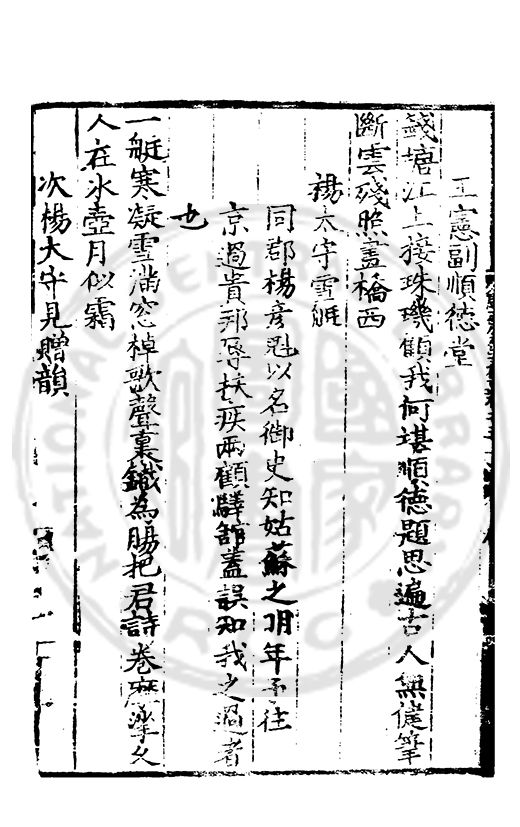 王憲副順德堂
錢塘江上接珠璣顧我何堪順德題思遍古人無健筆
斷雲殘照畫橋西
楊太守雪艇
同郡楊彥魁以名御史知姑蘇之明年予往
京過貴郡辱扶疾兩顧驛館蓋誤知我之過者
也
一艇寒凝雪滿窓棹歌聲裏鐵為腸把君詩卷摩挲久
人在氷壺月似霜
次楊大守見贈韻